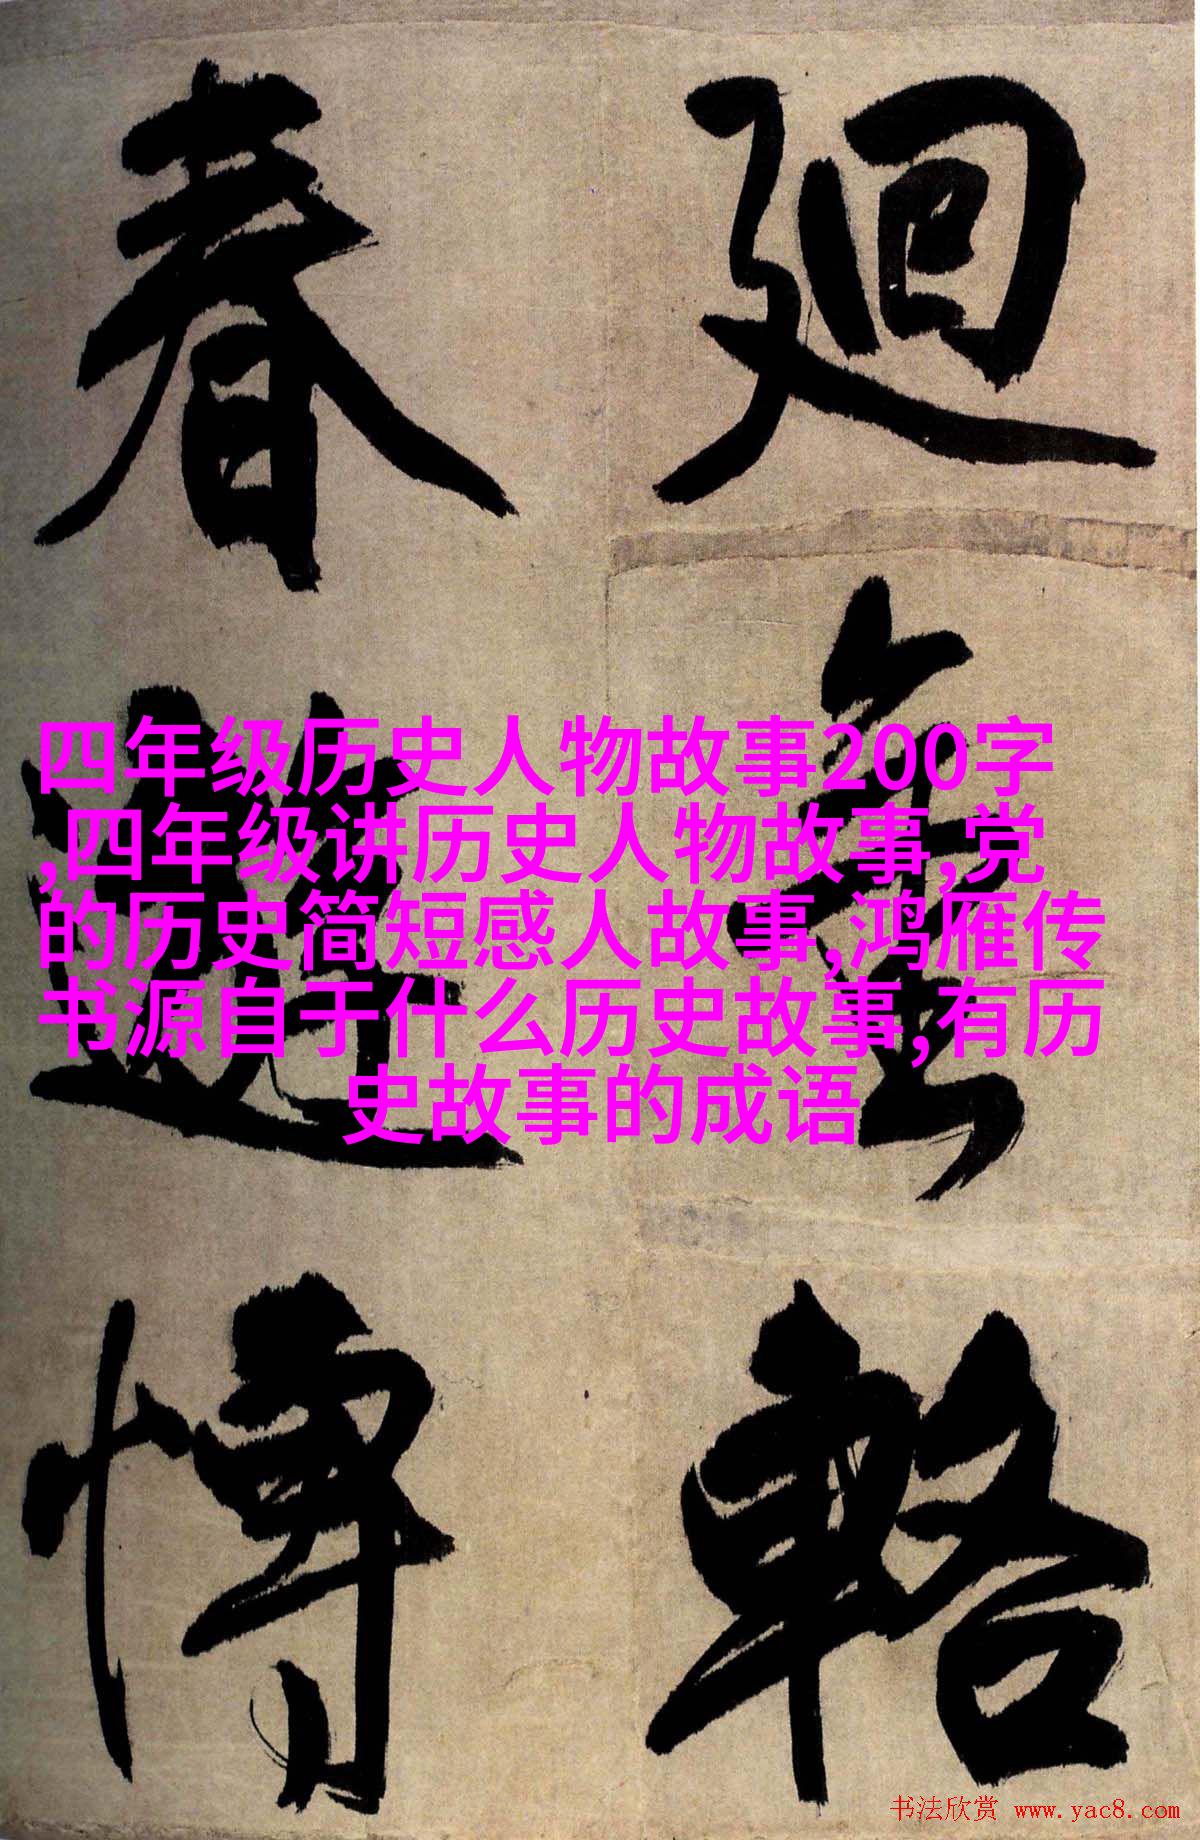 迴
輅
春
愽
四年级历史人物故事200字
,四年级讲历史人物故事,党
的历史简短感人故事,鸿雁传
书源自于什么历史故事,有历
史故事的成语
书法欣赏 www.yac8.com